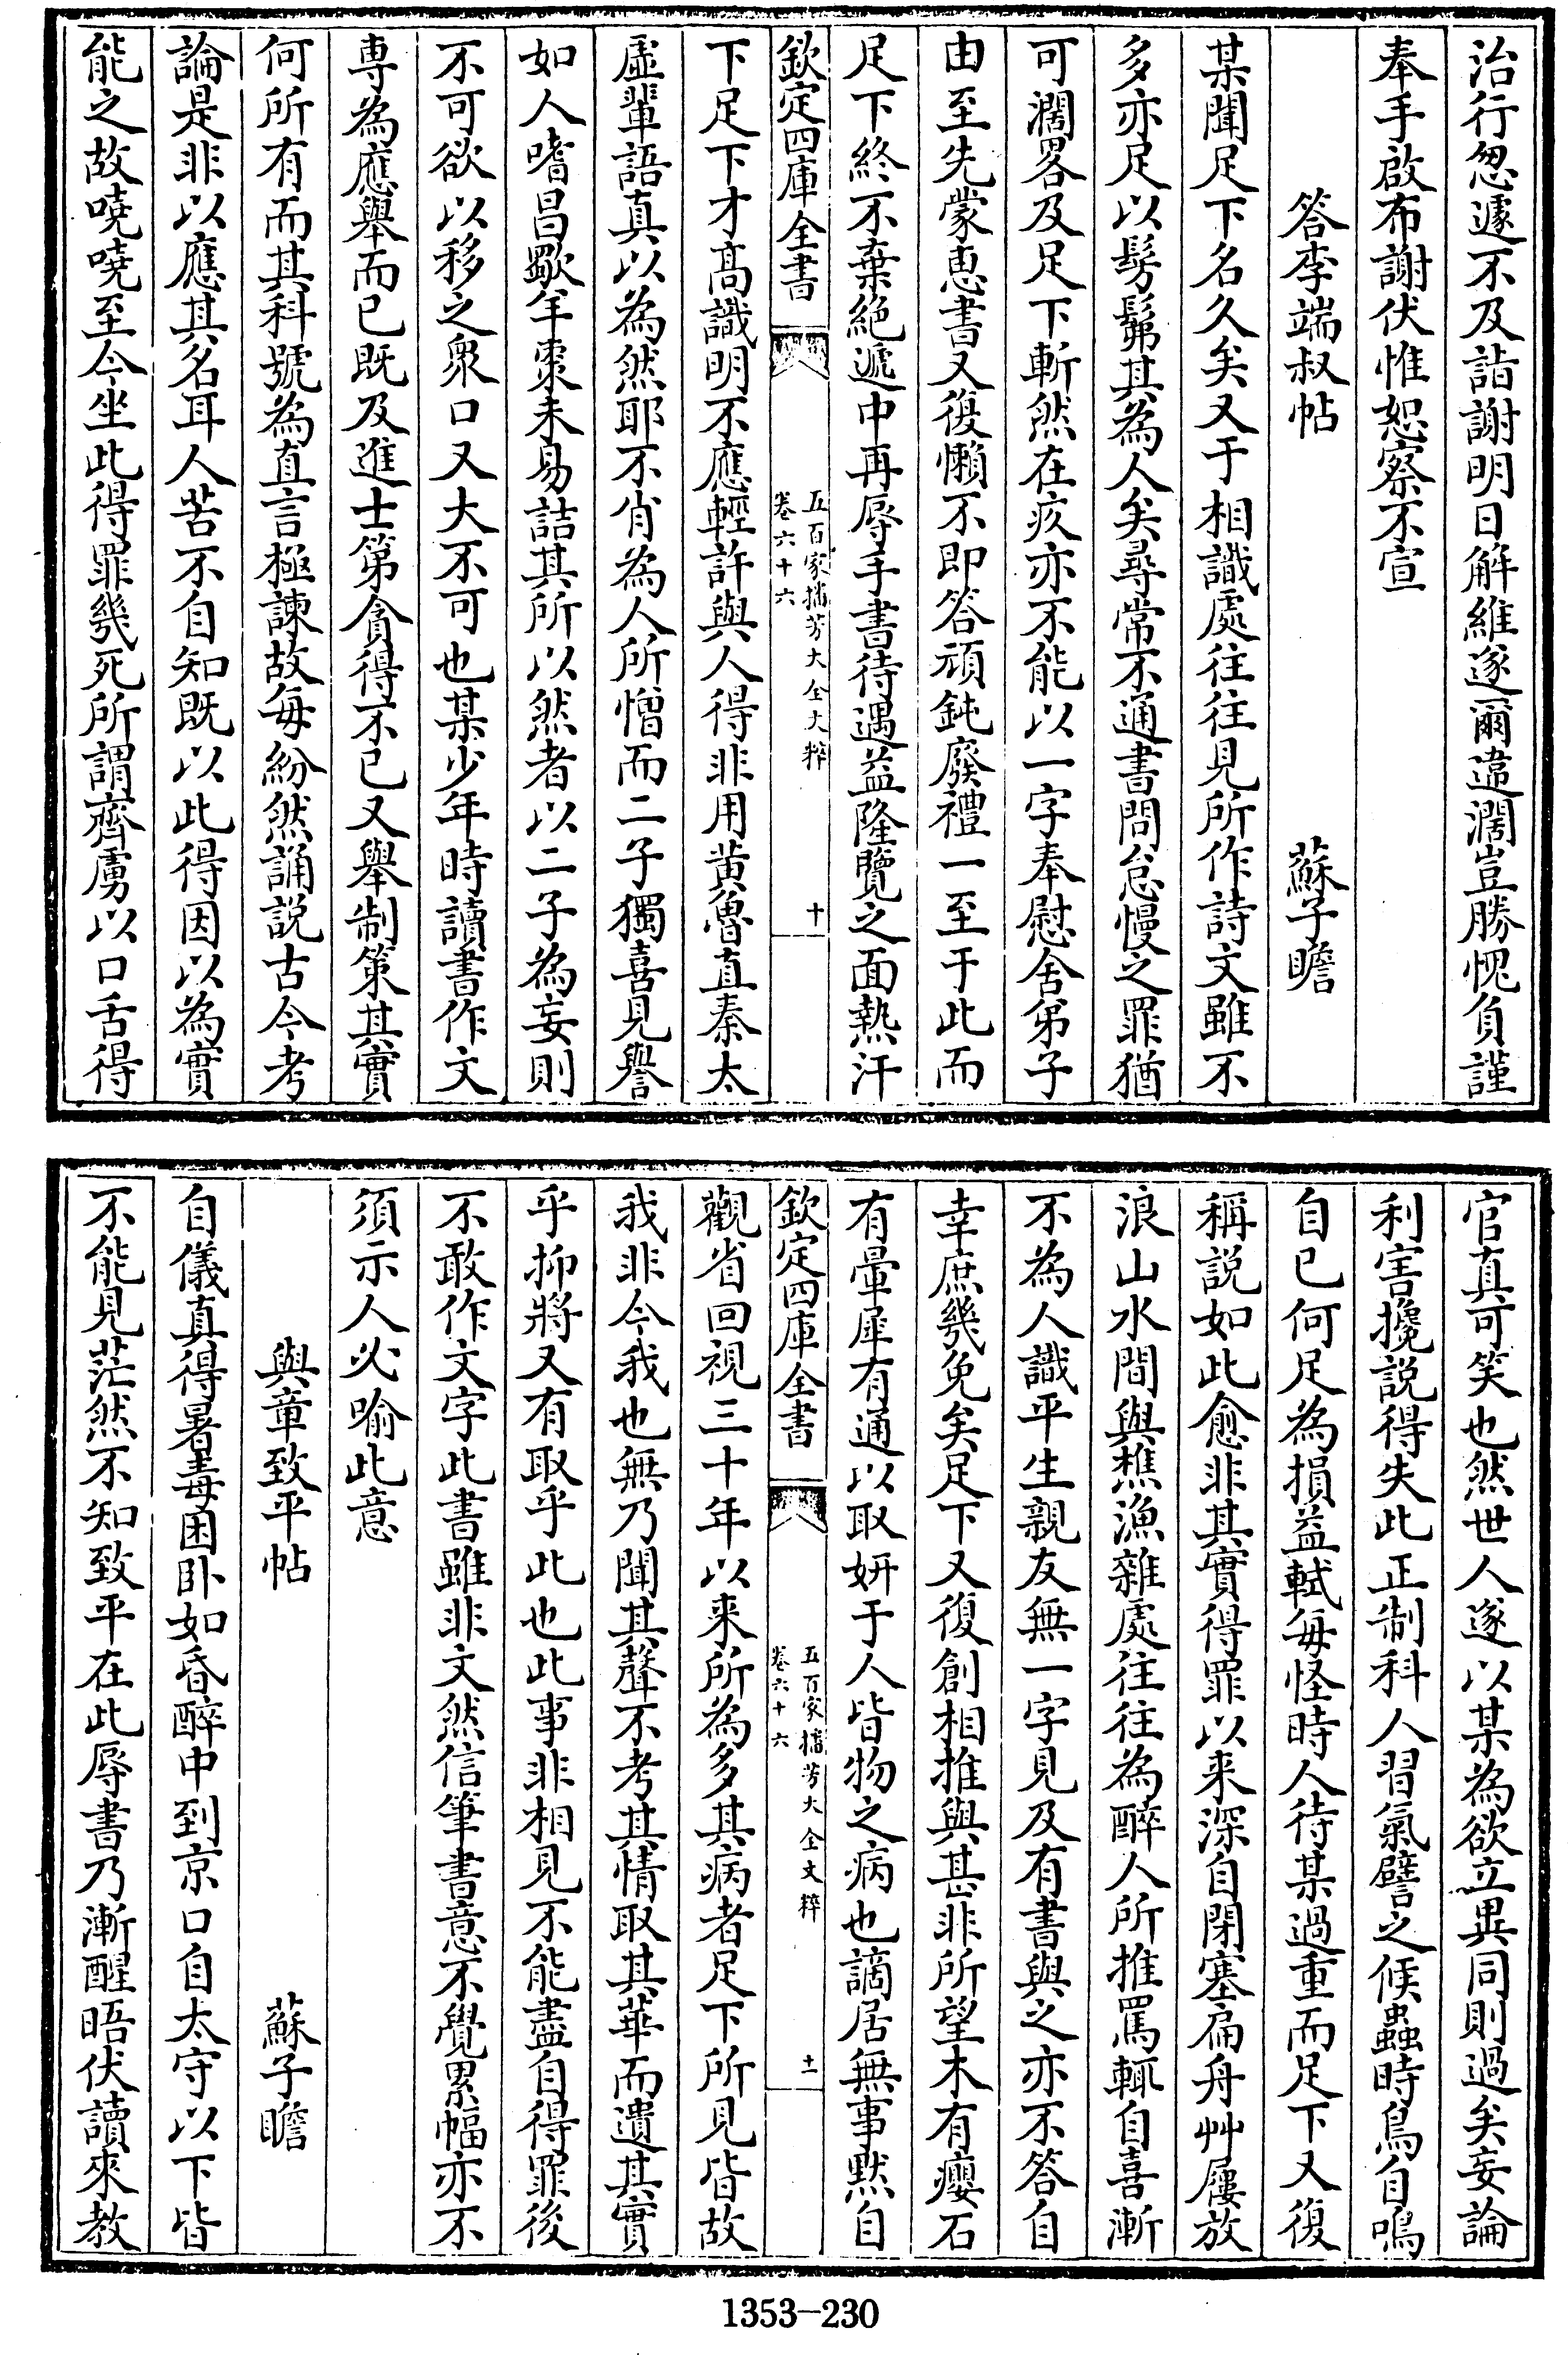 治行怱遽不及詣謝明日解維遂爾違濶豈勝愧負謹
奉手啟布謝伏惟恕察不宣
答李端叔帖　蘇子瞻
某聞足下名久矣又于相識處往往見所作詩文雖不
多亦足以髣髴其為人矣尋常不通書問怠慢之罪猶
可濶畧及足下斬然在疚亦不能以一字奉慰舍弟子
由至先蒙惠書又復懶不即答頑鈍廢禮一至于此而
足下終不棄絶遞中再辱手書待遇益隆覽之面熱汗
欽定四庫全書
五百家播芳大全文粹
卷六十六
十
下足下才髙識明不應輕許與人得非用黄魯直秦太
虛輩語真以為然耶不肖為人所憎而二子獨喜見譽
如人嗜昌歜羊棗未易詰其所以然者以二子為妄則
不可欲以移之衆口又大不可也某少年時讀書作文
専為應舉而已既及進士第貪得不已又舉制策其實
何所有而其科號為直言極諫故每紛然誦説古今考
論是非以應其名耳人苦不自知既以此得因以為實
能之故嘵嘵至今坐此得罪幾死所謂齊虜以口舌得
官真可笑也然世人遂以某為欲立異同則過矣妄論
利害攙説得失此正制科人習氣譬之候蟲時鳥自鳴
自已何足為損益軾每怪時人待某過重而足下又復
稱説如此愈非其實得罪以来深自閉塞扁舟艸屨放
浪山水間與樵漁雜處往往為醉人所推罵輒自喜漸
不為人識平生親友無一字見及有書與之亦不答自
幸庶幾免矣足下又復創相推與甚非所望木有癭石
有暈犀有通以取妍于人皆物之病也謫居無事黙自
欽定四庫全書
五百家播芳大全文粹
卷六十六
十一
觀省回視三十年以来所為多其病者足下所見皆故
我非今我也無乃聞其聲不考其情取其華而遺其實
乎抑將又有取乎此也此事非相見不能盡自得罪後
不敢作文字此書雖非文然信筆書意不覺累幅亦不
須示人必喻此意
與章致平帖　蘇子瞻
自儀真得暑毒困卧如昏醉中到京口自太守以下皆
不能見茫然不知致平在此辱書乃漸醒晤伏讀來教
1353—230